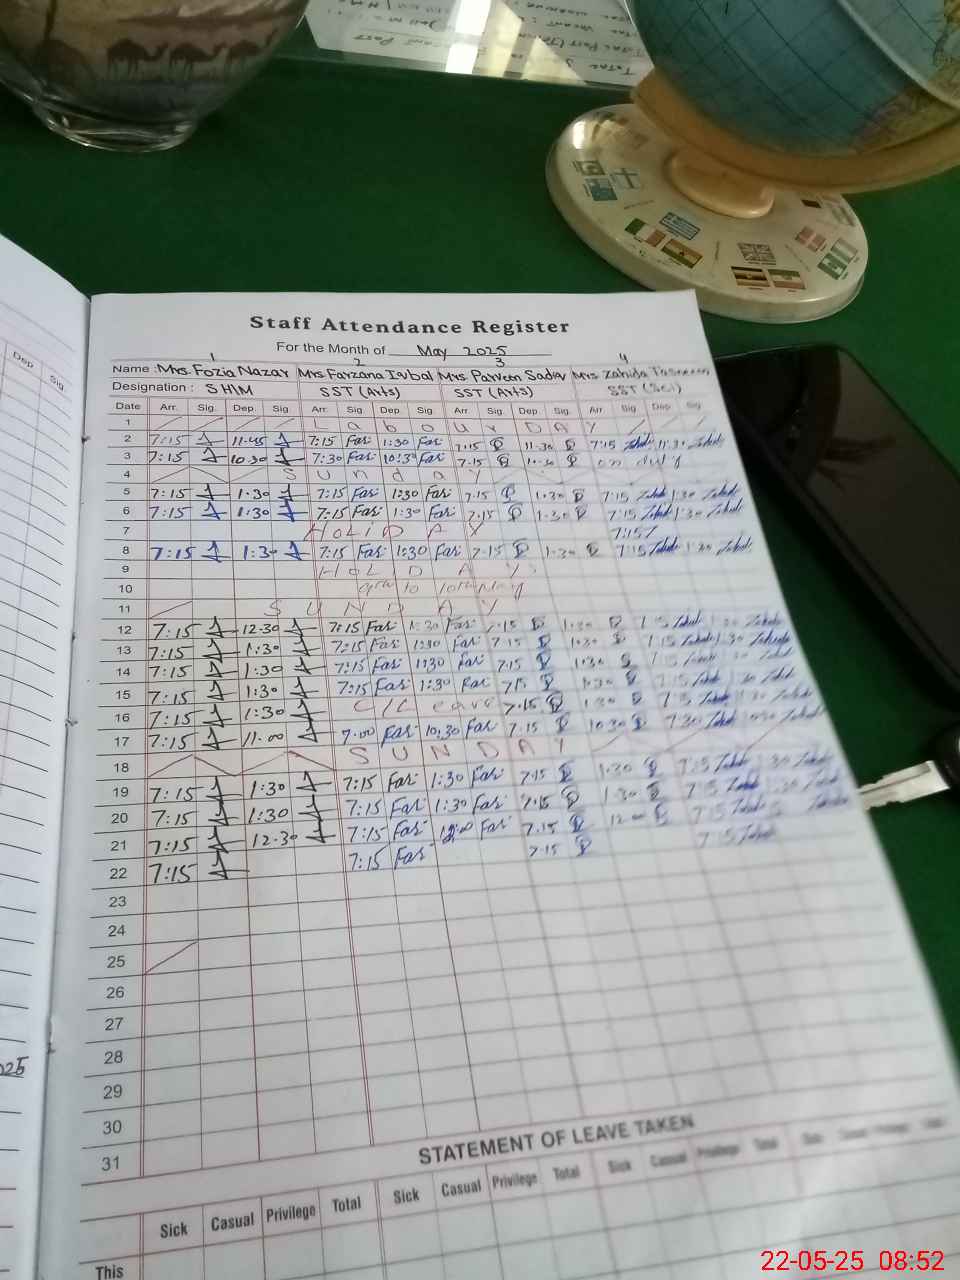 Staff Attendance Register
For the Month of May 2025
1 2 3 4
Name : Mrs. Fozia Nazar Mrs Farzana Iqbal Mrs Parveen Sadiq Mrs. Zahida
Designation : SHM SST (Arts) SST (Arts) SST (Sci)
Date Arr. Sig. Dep. Sig. Arr. Sig. Dep. Sig. Arr. Sig. Dep. Sig. Arr. Sig. Dep. Sig.
1 Labour DAY
2 7:15 11:45 7:15 Far 1:30 Far 7:15 11:30 7:15 11:30
3 7:15 10:30 7:30 Far 10:30 Far 7:15 10:30 on duty
4 Sunday
5 7:15 1:30 7:15 Far 1:30 Far 7:15 1:30 7:15 1:30
6 7:15 1:30 7:15 Far 1:30 Far 7:15 1:30 7:15 1:30
7 HOLIDAY 7:15
8 7:15 1:30 7:15 Far 1:30 Far 7:15 1:30 7:15 1:30
9 HOLIDAY
10 9th to 10th May
11 SUNDAY
12 7:15 12:30 7:15 Far 1:30 Far 7:15 1:30 7:15 1:30
13 7:15 1:30 7:15 Far 1:30 Far 7:15 1:30 7:15 1:30
14 7:15 1:30 7:15 Far 1:30 Far 7:15 1:30 7:15 1:30
15 7:15 1:30 7:15 Far 1:30 Far 7:15 1:30 7:15 1:30
16 7:15 1:30 C/Leave 7:15 1:30 7:15 1:30
17 7:15 11:00 7:00 Far 10:30 Far 7:15 10:30 7:30 10:30
18 SUNDAY
19 7:15 1:30 7:15 Far 1:30 Far 7:15 1:30 7:15 1:30
20 7:15 1:30 7:15 Far 1:30 Far 7:15 1:30 7:15 1:30
21 7:15 12:30 7:15 Far 12:00 Far 7:15 12:00 7:15
22 7:15 7:15 Far 7:15 7:15
23
24
25
26
27
28
29
30
31
STATEMENT OF LEAVE TAKEN
Sick Casual Privilege Total Sick Casual Privilege Total Sick Casual Privilege Total
This
Dep Sig.
025
22-05-25 08:52